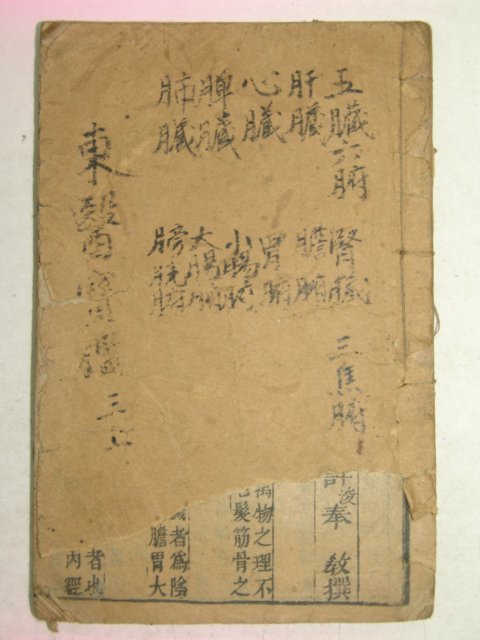 五臟六腑 腎臟 三焦腑
肝臟 膽腑
心臟 胃腑
脾臟 小腸腑
肺臟 大腸腑
膀胱腑
東醫寶鑑 三
浚奉 敎撰
物之理不
髮筋骨之
者爲陰
膽胃大
者也
內經